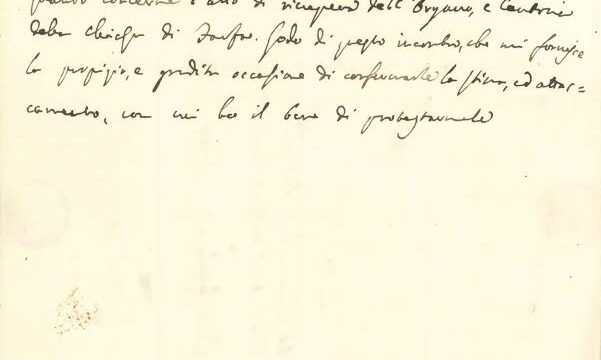 quanto concerne l'atto di ricupera dell'Organo, e Cantoria
della Chiesa di Farfa. Godo di questo incontro, che mi fornisce
la propizia, e gradita occasione di confermarle la stima, ed attac=
camento, con cui ho il bene di protestarmele